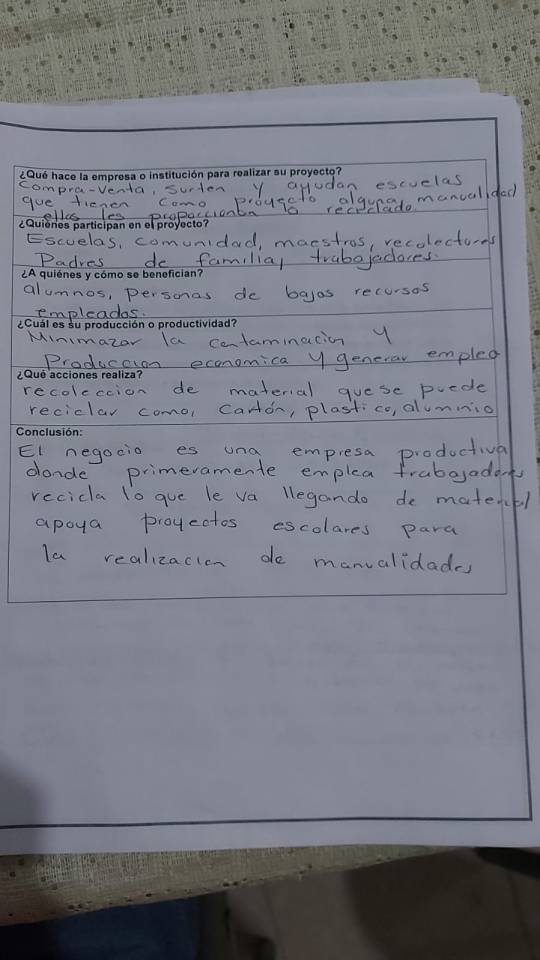 ¿Qué hace la empresa o institución para realizar su proyecto?
Compra-Venta, surten y ayudan escuelas
que tienen como proyecto alguna manualidad
ellos les proporcionan lo reciclado.
¿Quiénes participan en el proyecto?
Escuelas, comunidad, maestros, recolectores
Padres de familia, trabajadores.
¿A quiénes y cómo se benefician?
alumnos, personas de bajos recursos
empleados.
¿Cuál es su producción o productividad?
Minimazar la contaminación y
Producción economica y generar empleo
¿Qué acciones realiza?
recolección de material que se puede
reciclar como, cartón, plastico, aluminio
Conclusión:
El negocio es una empresa productiva
donde primeramente emplea trabajadores
recicla lo que le va llegando de material
apoya proyectos escolares para
la realización de manualidades